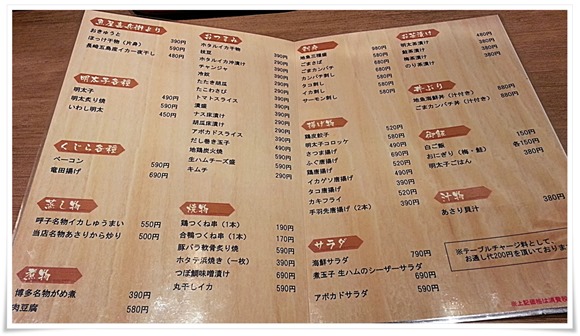 魚屋喜兵衛より
おきゅうと 390円
ほっけ干物（片身） 590円
長崎五島産イカ一夜干し 480円
明太子各種
明太子 490円
明太炙り焼 590円
いわし明太 450円
くじら各種
ベーコン 590円
竜田揚げ 690円
蒸し物
呼子名物イカしゅうまい 550円
当店名物あさりから炒り 500円
煮物
博多名物がめ煮 390円
肉豆腐 580円
おつまみ
ホタルイカ干物
枝豆
ホタルイカ沖漬け
チャンジャ
冷奴
たたき胡瓜
たこわさび
トマトスライス
漬盛
ナス床漬け
胡瓜床漬け
アボカドスライス
だし巻き玉子
地鶏炭火焼
生ハムチーズ盛
キムチ 290円
焼物
鶏つくね串（1本） 190円
合鴨つくね串（1本） 170円
豚バラ軟骨炙り焼 590円
ホタテ浜焼き（一枚） 390円
つぼ鯛味噌漬け 690円
丸干しイカ 490円
刺身
地魚三種盛 980円
ごまさば 680円
ごまカンパチ 580円
カンパチ刺し 580円
タコ刺し
イカ刺し
サーモン刺し
揚げ物
鶏皮餃子 520円
明太子コロッケ 490円
さつま揚げ 490円
ふぐ唐揚げ 590円
鶏唐揚げ
イカゲソ唐揚げ
タコ唐揚げ
カキフライ
手羽先唐揚げ（2本） 390円
サラダ
海鮮サラダ 790円
煮玉子 生ハムのシーザーサラダ 690円
アボカドサラダ
お茶漬け
明太茶漬け
鮭茶漬け
梅茶漬け
のり茶漬け
丼ぶり
地魚海鮮丼（汁付き）
ごまカンパチ丼（汁付き）
御飯
白ご飯 150円
おにぎり（梅・鮭） 各150円
明太子ごはん 380円
汁物
あさり貝汁 380円
※テーブルチャージ料として、
お通し代200円を頂いておりま
※上記価格は消費税